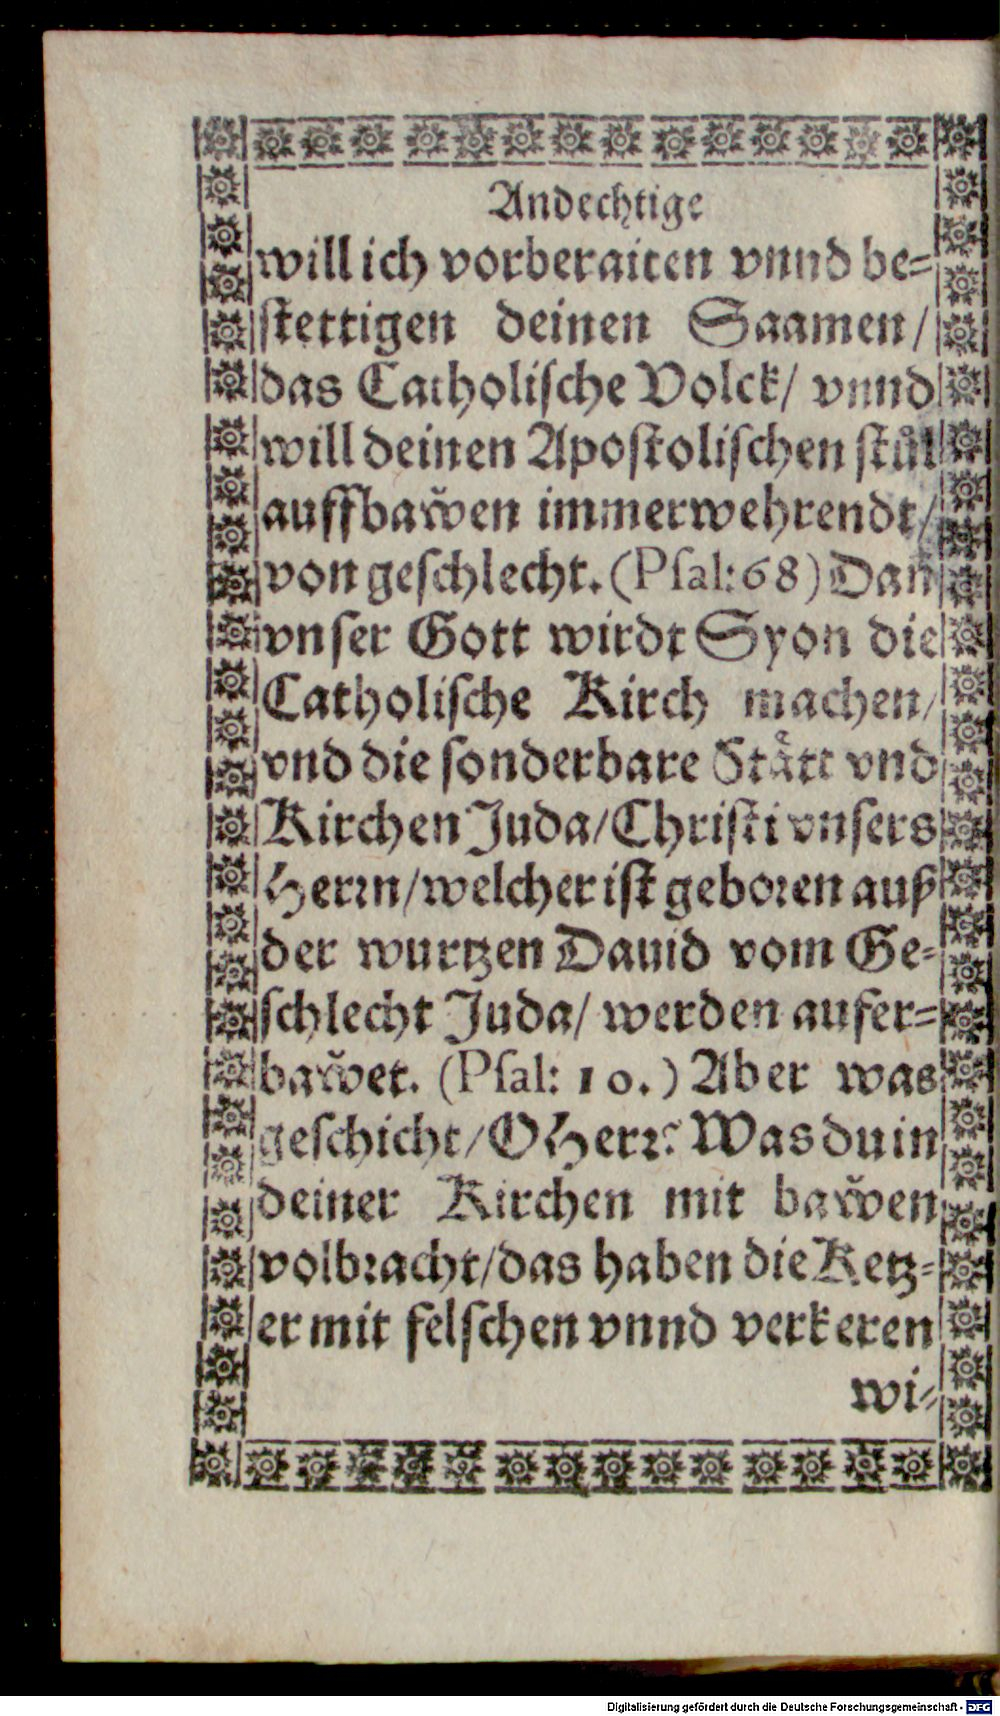 Andechtige
will ich vorberaiten vnnd be⸗
ſtettigen deinen Saamen/
das Catholiſche Volck/ vnnd
will deinen Apoſtoliſchen ſtůl
auffbaw̆en immerwehrendt/
von geſchlecht. (Pſal: 68) Dan̄
vnſer Gott wirdt Syon die
Catholiſche Kirch machen/
vnd die ſonderbare Staͤtt vnd
Kirchen Juda/ Chriſti vnſers
Herꝛn/ welcher iſt geboꝛen auß
der wurtzen Dauid vom Ge⸗
ſchlecht Juda/ werden aufer⸗
baw̆et. (Pſal: 10.) Aber was
geſchicht/ O Herꝛ? Was du in
deiner Kirchen mit baw̆en
volbꝛacht/ das haben die Ketz⸗
er mit felſchen vnnd verkeren
wi⸗
Digitalisierung gefördert durch die Deutsche Forschungsgemeinschaft - DFG